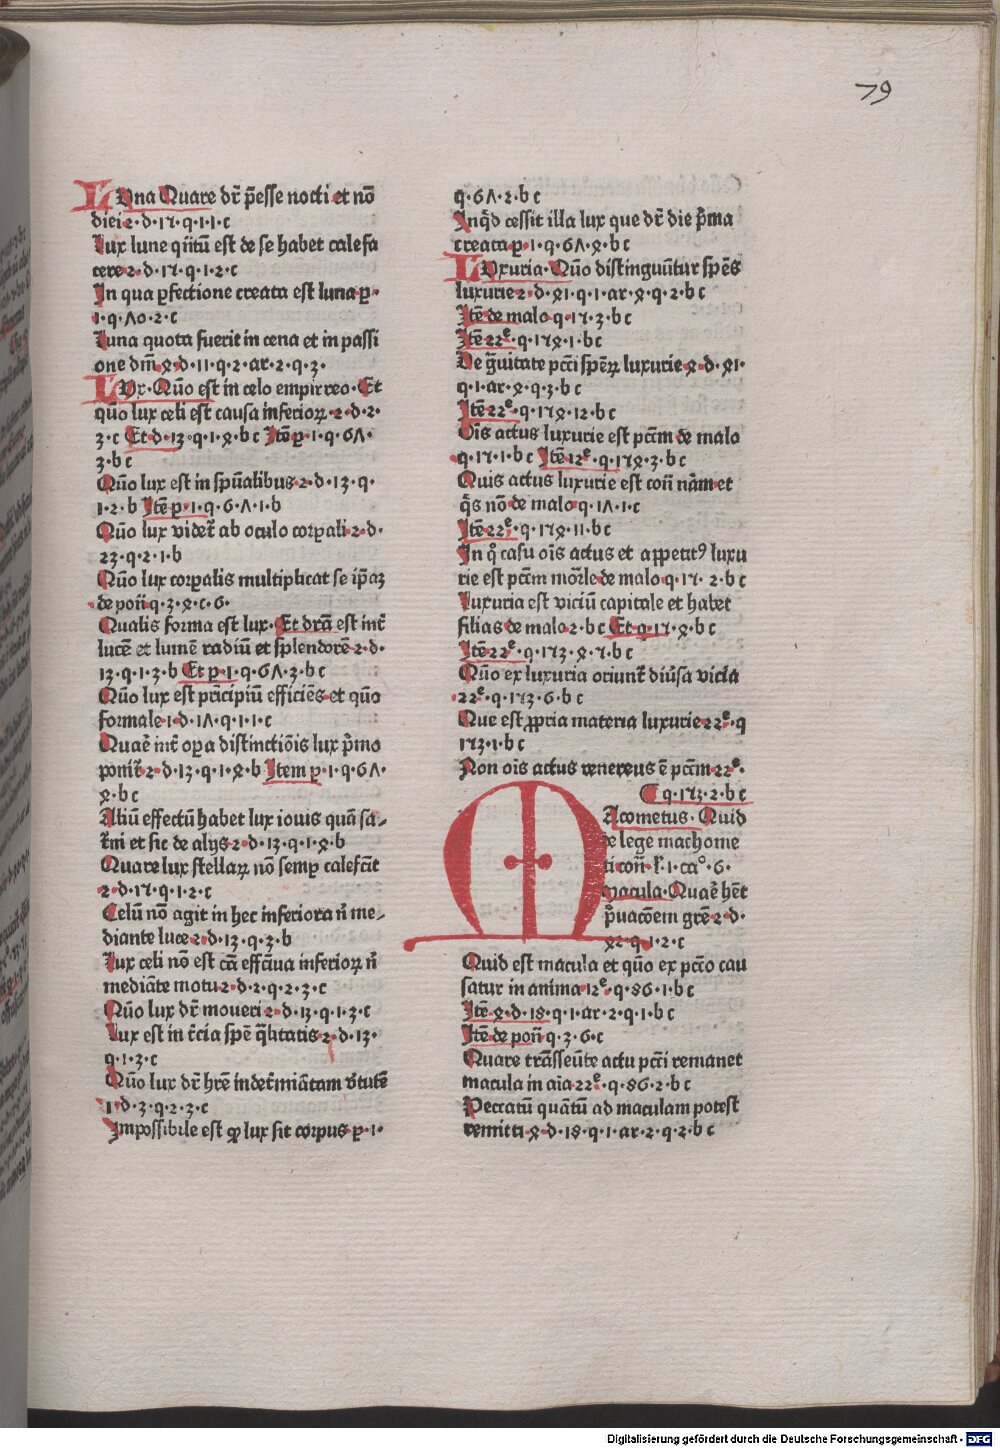 79
LVna Quare dr̄ p̄esse nocti et nō
diei·2·d·17·q·1·1·c
Lux lune q̄ntū est de se habet calefa
cere·2·d·17·q·1·2·c
In qua ꝑfectione creata est luna·p·
1·q·70·2·c
Luna quota fuerit in cena et in passi
one dm̄·4·d·11·q·2·ar·2·q·3·
LVx·Quō est in celo empirreo·Et
quō lux celi est causa inferioꝝ·2·d·2·
3·c Et·d·13·q·1·4·b c Itē p·1·q·67·
3·b c
Quō lux est in spūalibus·2·d·13·q·
1·2·b Itē p·1·q·6·7·1·b
Quō lux videt᷑ ab oculo corpali·2·d·
23·q·2·1·b
Quō lux corpalis multiplicat se ip̄aꝫ
de pon̄·q·3·4·c·6·
Qualis forma est lux·Et dr̄am est int᷑
lucē et lumē radiū et splendorē·2·d·
13·q·1·3·b Et p·1·q·67·3·b c
Quō lux est prīcipiū efficiēs et quō
formale·1·d·17·q·1·1·c
Quaē int᷑ oꝑa distinctiōis lux p̄mo
ponit᷑·2·d·13·q·1·4·b Item p·1·q·67·
4·b c
Aliū effectū habet lux iouis quā sa-
t᷑ni et sic de alijs·2·d·13·q·1·4·b
Quare lux stellaꝝ nō semꝑ calefac̄it
2·d·17·q·1·2·c
Celū nō agit in hec inferiora n̄ me-
diante luce·2·d·13·q·3·b
Lux celi nō est cā effc̄iua inferioꝝ n̄
mediāte motu·2·d·2·q·2·3·c
Quō lux dr̄ moueri·2·d·13·q·1·3·c
Lux est in t᷑cia spē q̄litatis·2·d·13·
q·1·3·c
Quō lux dr̄ hr̄e indet᷑minātam v̄tutē
1·d·3·q·2·3·c
Impossibile est ꝙ lux sit corpus·p·1·
q·67·2·b c
Inq̄d cessit illa lux que dr̄ die p̄ma
creata·p·1·q·67·4·b c
LVxuria·Quō distinguūtur spēs
luxurie·2·d·41·q·1·ar·4·q·2·b c
Itē de malo q·17·3·b c
Itē 22ͤ·q·174·1·b c
De ḡuitate pcc̄i spēꝝ luxurie·4·d·41·
q·1·ar·4·q·3·b c
Itē 22ͤ·q·174·12·b c
Oīs actus luxurie est pcc̄m de malo
q·17·1·b c Itē 12ͤ·q·174·3·b c
Quis actus luxurie est con̄ nām et
q̄s nō de malo q·17·1·c
Itē 22ͤ·q·174·11·b c
In q̊ casu oīs actus et appetit⁹ luxu
rie est pcc̄m mor̄le de malo q·17·2·b c
Luxuria est viciū capitale et habet
filias de malo·2·b c Et q·17·4·b c
Itē 22ͤ·q·173·4·7·b c
Quō ex luxuria oriunt᷑ diūsa vicia
22ͤ·q·173·6·b c
Que est ꝓpria materia luxurie 22ͤ·q
173·1·b c
Non oīs actus venereus ē pcc̄m 22ͤ·
q·173·2·b c
MAcometus·Quid
de lege machome
ti con̄·l·1·cå·6·
Macula·Quaē hēt
p̄uacōem gr̄e·2·d·
42·q·1·2·c
Quid est macula et quō ex pcc̄o cau
satur in anima·12ͤ·q·86·1·b c
Itē·4·d·18·q·1·ar·2·q·1·b c
Itē de pon̄ q·3·6·c
Quare trāseūte actu pcc̄i remanet
macula in aīa 22ͤ·q·86·2·b c
Peccatū quātū ad maculam potest
remitti·4·d·18·q·1·ar·2·q·2·b c
Digitalisierung gefördert durch die Deutsche Forschungsgemeinschaft - DFG